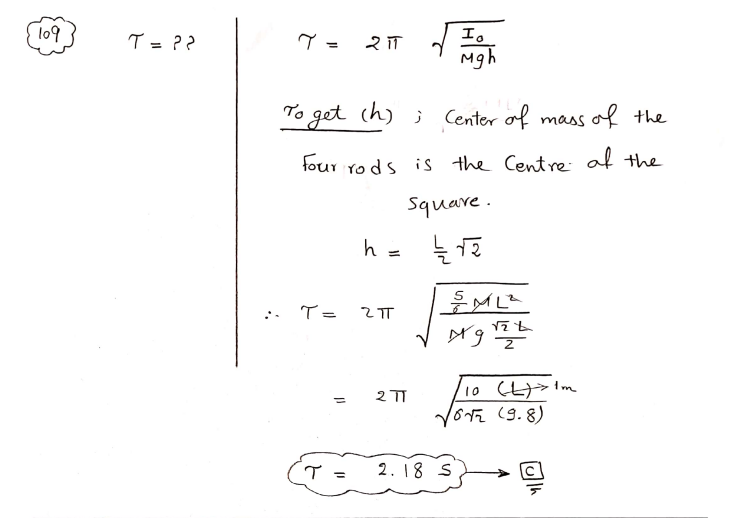 109
T = ??
T = 2π √(I₀ / Mgh)
To get (h) ; Center of mass of the
four rods is the Centre of the
square.
h = L/2 √2
∴ T = 2π √((5/6 ML²) / (Mg √2 L/2))
= 2π √((10 (L)→1m) / (6√2 (9.8)))
T = 2.18 S → C